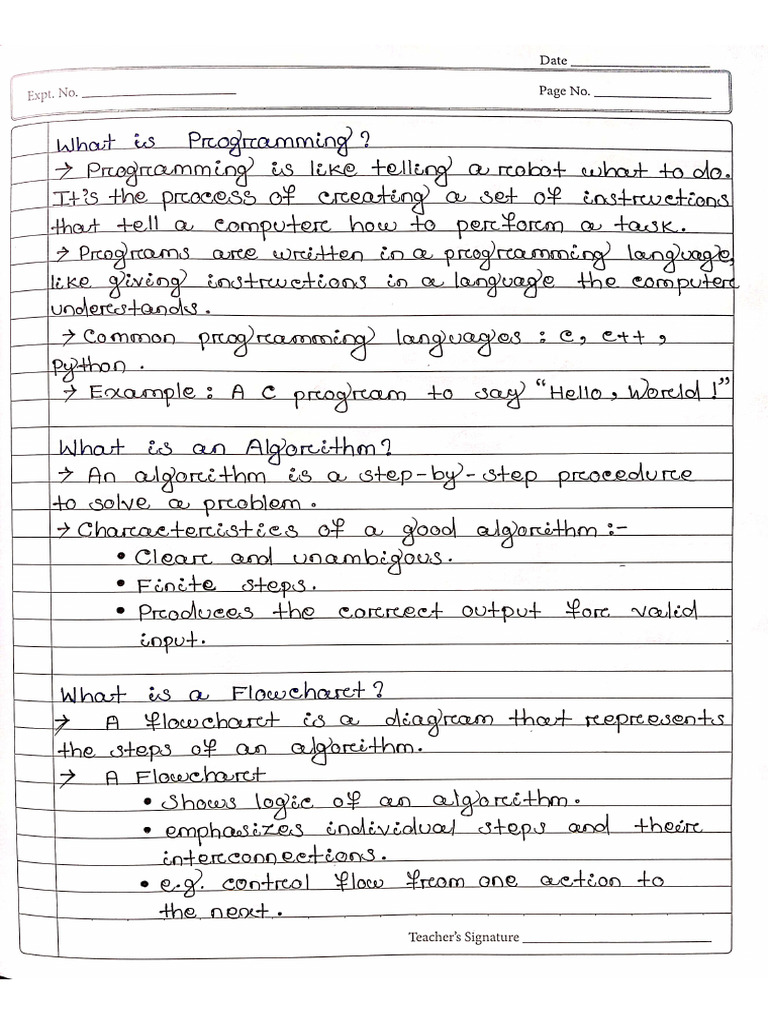 Date
Expt. No.
Page No.
What is Programming?
→ Programming is like telling a robot what to do.
It's the process of creating a set of instructions
that tell a computer how to perform a task.
→ Programs are written in a programming language,
like giving instructions in a language the computer
understands.
→ Common programming languages : C, C++,
Python.
→ Example : A C program to say "Hello, World!"
What is an Algorithm?
→ An algorithm is a step-by-step procedure
to solve a problem.
→ Characteristics of a good algorithm :-
• Clear and unambigous.
• Finite steps.
• Produces the correct output for valid
input.
What is a Flowchart?
→ A flowchart is a diagram that represents
the steps of an algorithm.
→ A Flowchart
• shows logic of an algorithm.
• emphasizes individual steps and their
interconnections.
• e.g. control flow from one action to
the next.
Teacher's Signature